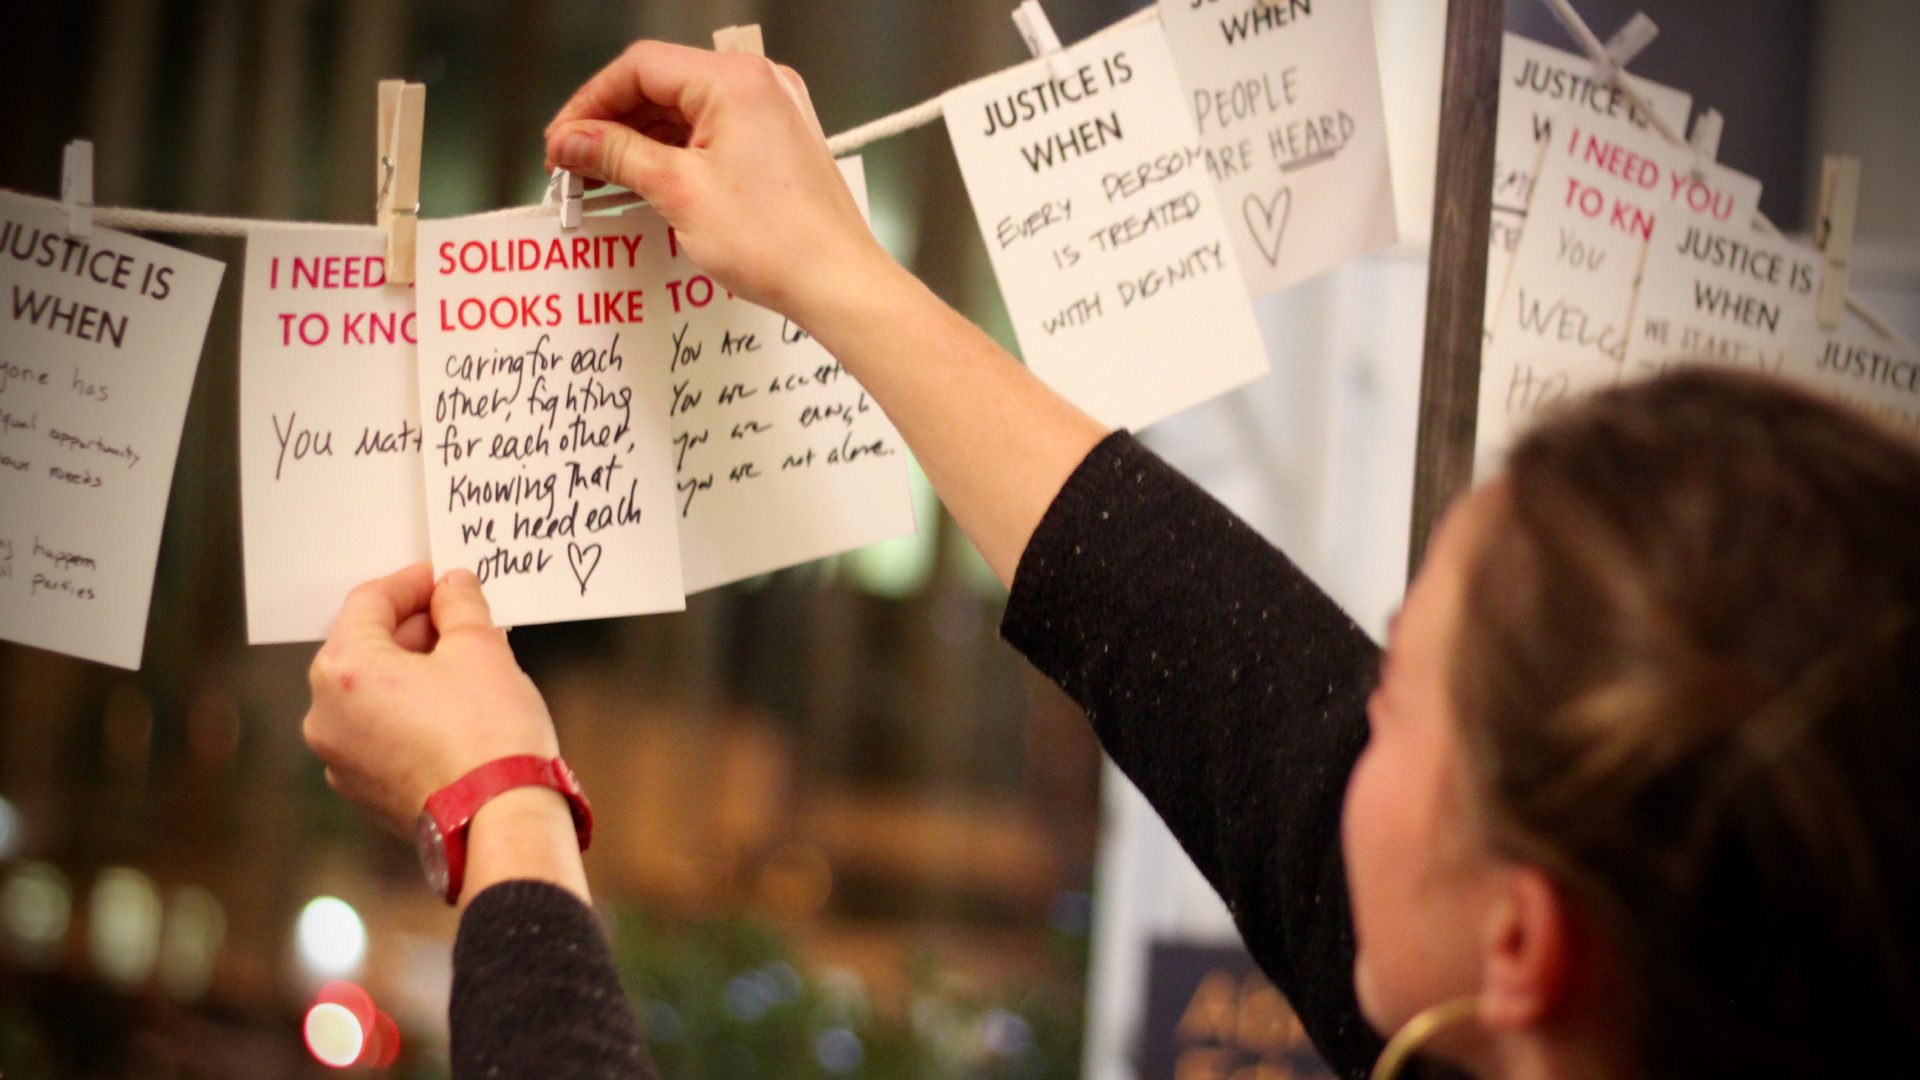 JUSTICE IS
WHEN
has
equal opportunity
needs
happen
parties
I NEED
TO
You
SOLIDARITY
LOOKS LIKE
caring for each
other, fighting
for each other,
Knowing that
we need each
other ♡
TO
You Are
You are
you are enough
you are not alone.
JUSTICE IS
WHEN
EVERY PERSON
IS TREATED
WITH DIGNITY
WHEN
PEOPLE
ARE HEARD
♡
JUSTICE
I NEED YOU
TO
YOU
JUSTICE IS
WHEN
WE START
JUSTICE
WHEN